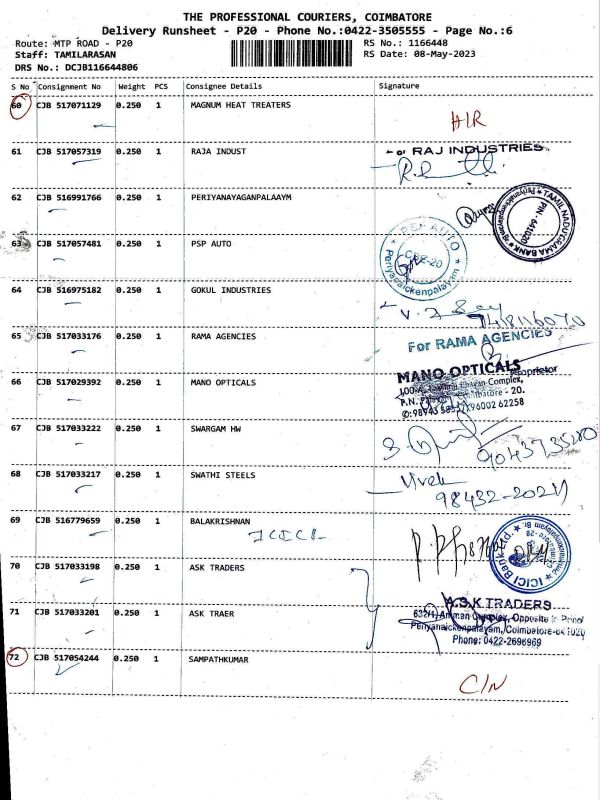 THE PROFESSIONAL COURIERS, COIMBATORE
Delivery Runsheet - P20 - Phone No.:0422-3505555 - Page No.:6
Route: MTP ROAD - P20 RS No.: 1166448
Staff: TAMILARASAN RS Date: 08-May-2023
DRS No.: DCJB116644806
S No Consignment No Weight PCS Consignee Details Signature
60 CJB 517071129 0.250 1 MAGNUM HEAT TREATERS
H/R
61 CJB 517057319 0.250 1 RAJA INDUST
For RAJ INDUSTRIES
62 CJB 516991766 0.250 1 PERIYANAYAGANPALAAYM
TAMIL NADU GRAMA BANK
PIN- 641020
63 CJB 517057481 0.250 1 PSP AUTO
PSP AUTO
CBE-20
Periyanaickenpalayam
64 CJB 516975182 0.250 1 GOKUL INDUSTRIES
65 CJB 517033176 0.250 1 RAMA AGENCIES
For RAMA AGENCIES
Proprietor
66 CJB 517029392 0.250 1 MANO OPTICALS
MANO OPTICALS
Complex,
Coimbatore - 20.
96002 62258
67 CJB 517033222 0.250 1 SWARGAM HW
68 CJB 517033217 0.250 1 SWATHI STEELS
Vivek
69 CJB 516779659 0.250 1 BALAKRISHNAN
ICICI
ICICI Bank
70 CJB 517033198 0.250 1 ASK TRADERS
71 CJB 517033201 0.250 1 ASK TRAER
A.S.K TRADERS
632/1, Amman Complex, Opposite
Periyanaickenpalayam, Coimbatore-641020
Phone: 0422-2696969
72 CJB 517054244 0.250 1 SAMPATHKUMAR
C/N